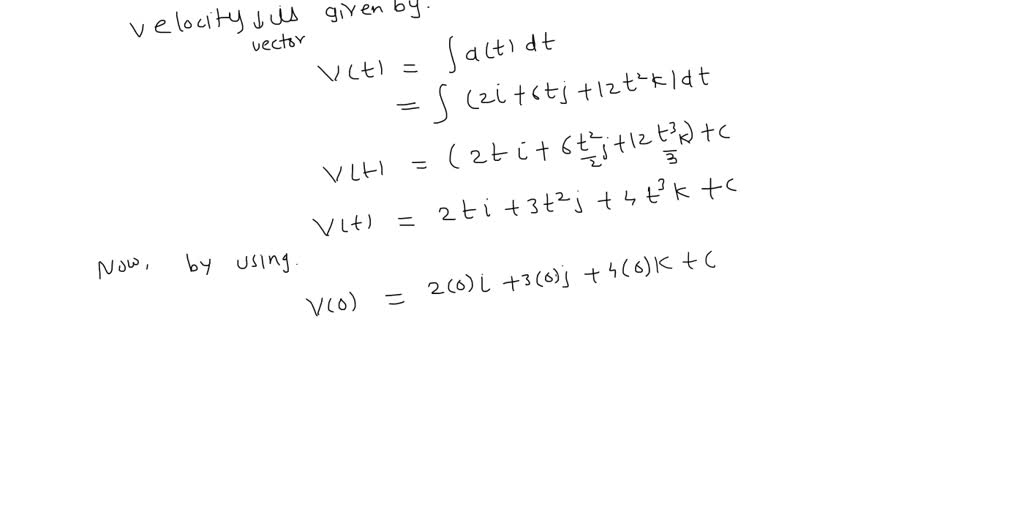 velocity ↓ is given by.
vector
V(t) = ∫a(t) dt
= ∫ (2i + 6tj + 12t²k) dt
V(t) = (2t i + 6 t²/2 j + 12 t³/3 k) + c
V(t) = 2t i + 3t² j + 4 t³ k + c
Now, by using.
V(0) = 2(0)i + 3(0)j + 4(0)k + c